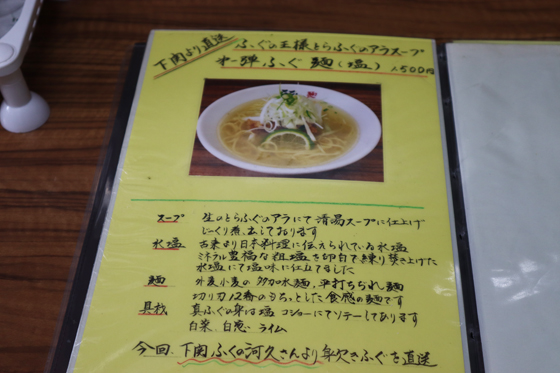 下関より直送
ふぐの王様とらふぐのアラスープ
第一弾.ふぐ 麺(塩) 1,500円
スープ 生のとらふぐのアラにて清湯スープに仕上げ
じっくり煮出しております
氷塩 古来より日本料理に伝えられている氷塩
ミネラル豊富な粗塩を卵白で練り焚き上げた
氷塩にて塩味に仕立てました
麺 外麦小麦の多加水麺、平打ちちぢれ麺
切り刃12番のもちっとした食感の麺です
具材 真ふぐの身は塩コショーにてソテーしております
白菜、白葱、ライム
今回、下関ふくの河久さんより身欠きふぐを直送